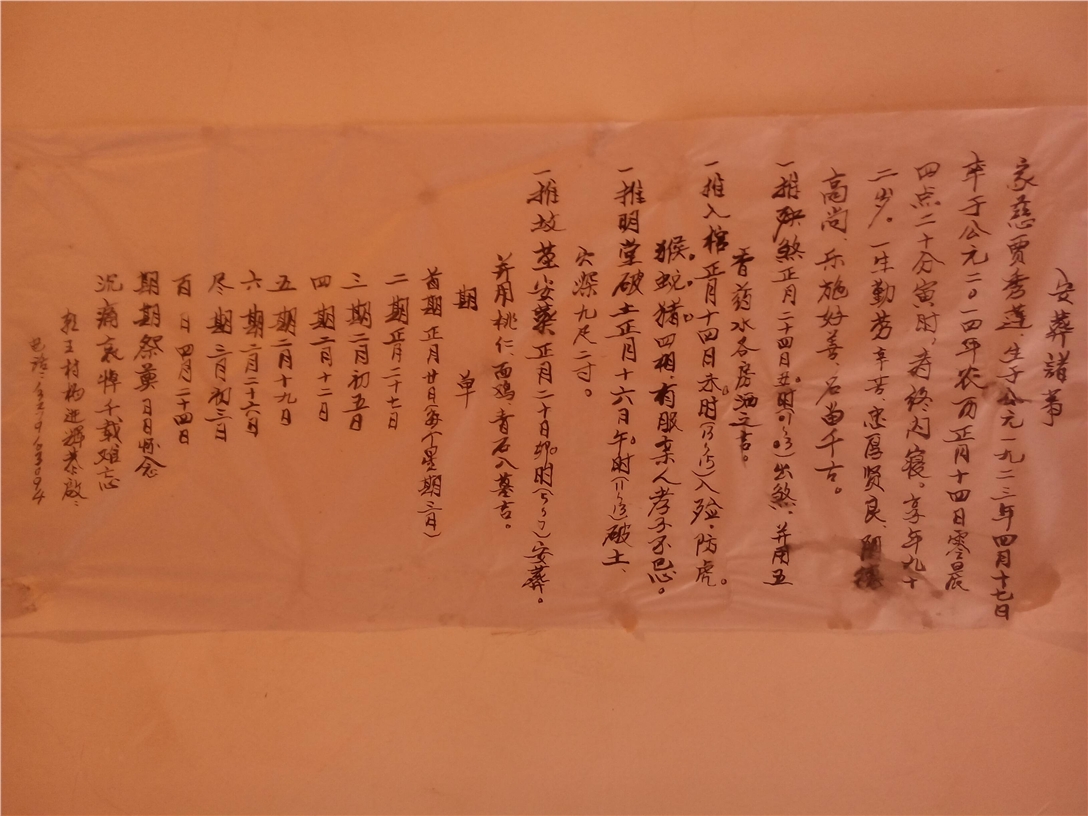 安葬诸事
家慈贾秀莲,生于公元一九二三年四月十七日
卒于公元二〇一四年农历正月十四日零晨
四点二十分寅时,寿终内寝。享年九十
二岁。一生勤劳辛苦、忠厚贤良、阴德
高尚、乐施好善、名留千古。
一推殃煞正月二十四日丑时(1-3)出煞、并用五
香药水各房洒之吉。
一推入棺正月十四日未时(13-15)入殓。防虎。
猴。蛇。猪四相,有服亲人孝子不忌。
一推明堂破土正月十六日午时(11-13)破土、
穴深九尺二寸。
一推坟茔安葬正月二十日卯时(5-7)安葬。
并用桃仁、面鸡、青石入墓吉。
期 单
首期正月廿日(每个星期三日)
二期正月二十七日
三期二月初五日
四期二月十二日
五期二月十九日
六期二月二十六日
尽期三月初三日
百日四月二十四日
期期祭奠日日怀念
沉痛哀悼千载难忘
王村杨进辉恭启
电话: